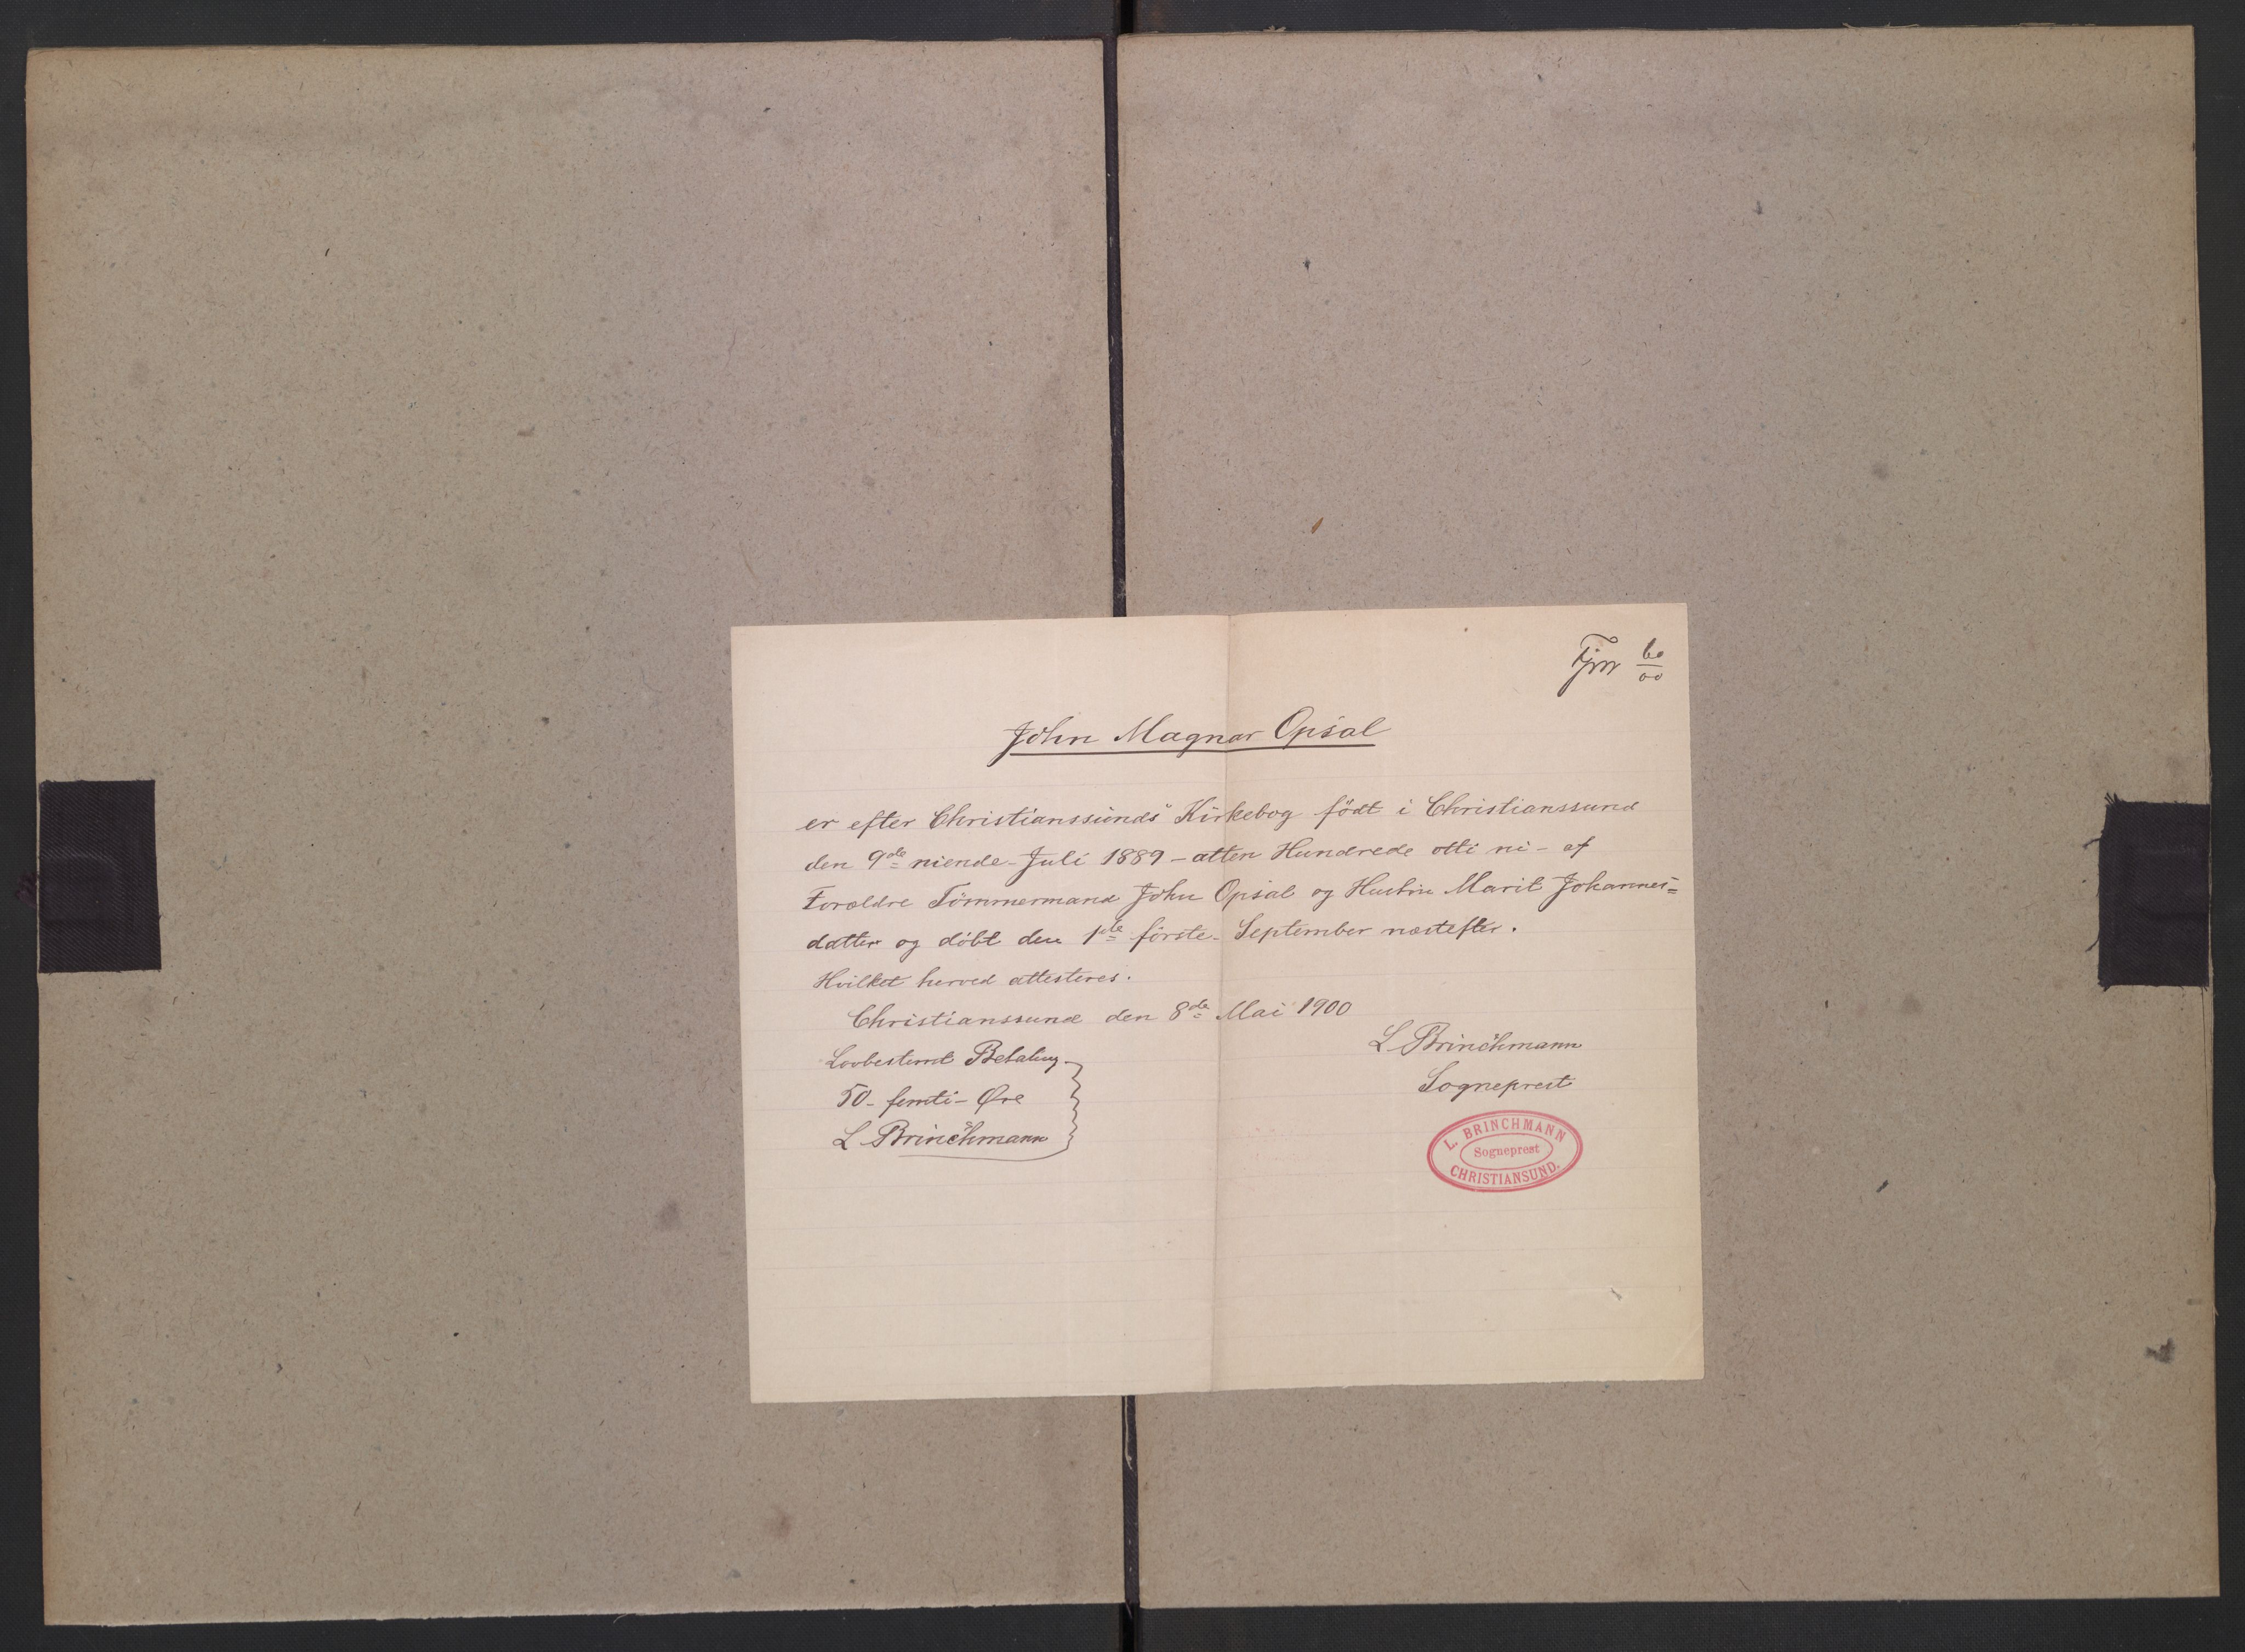 60
00
John Magnar Opsal
er efter Christianssunds Kirkebog födt i Christianssund
den 9de niende - Juli 1889 - atten Hundrede otti ni - af
Forældre Tömmermand John Opsal og Hustru Marit Johannes=
datter og döbt den 1ste förste - September næstefter.
Hvilket herved attesteres.
Christianssund den 8de Mai 1900
L Brinchmann
Sogneprest
Lovbestemt Betaling
50 - femti - Øre
L Brinchmann
L. BRINCHMANN
Sogneprest
CHRISTIANSUND.